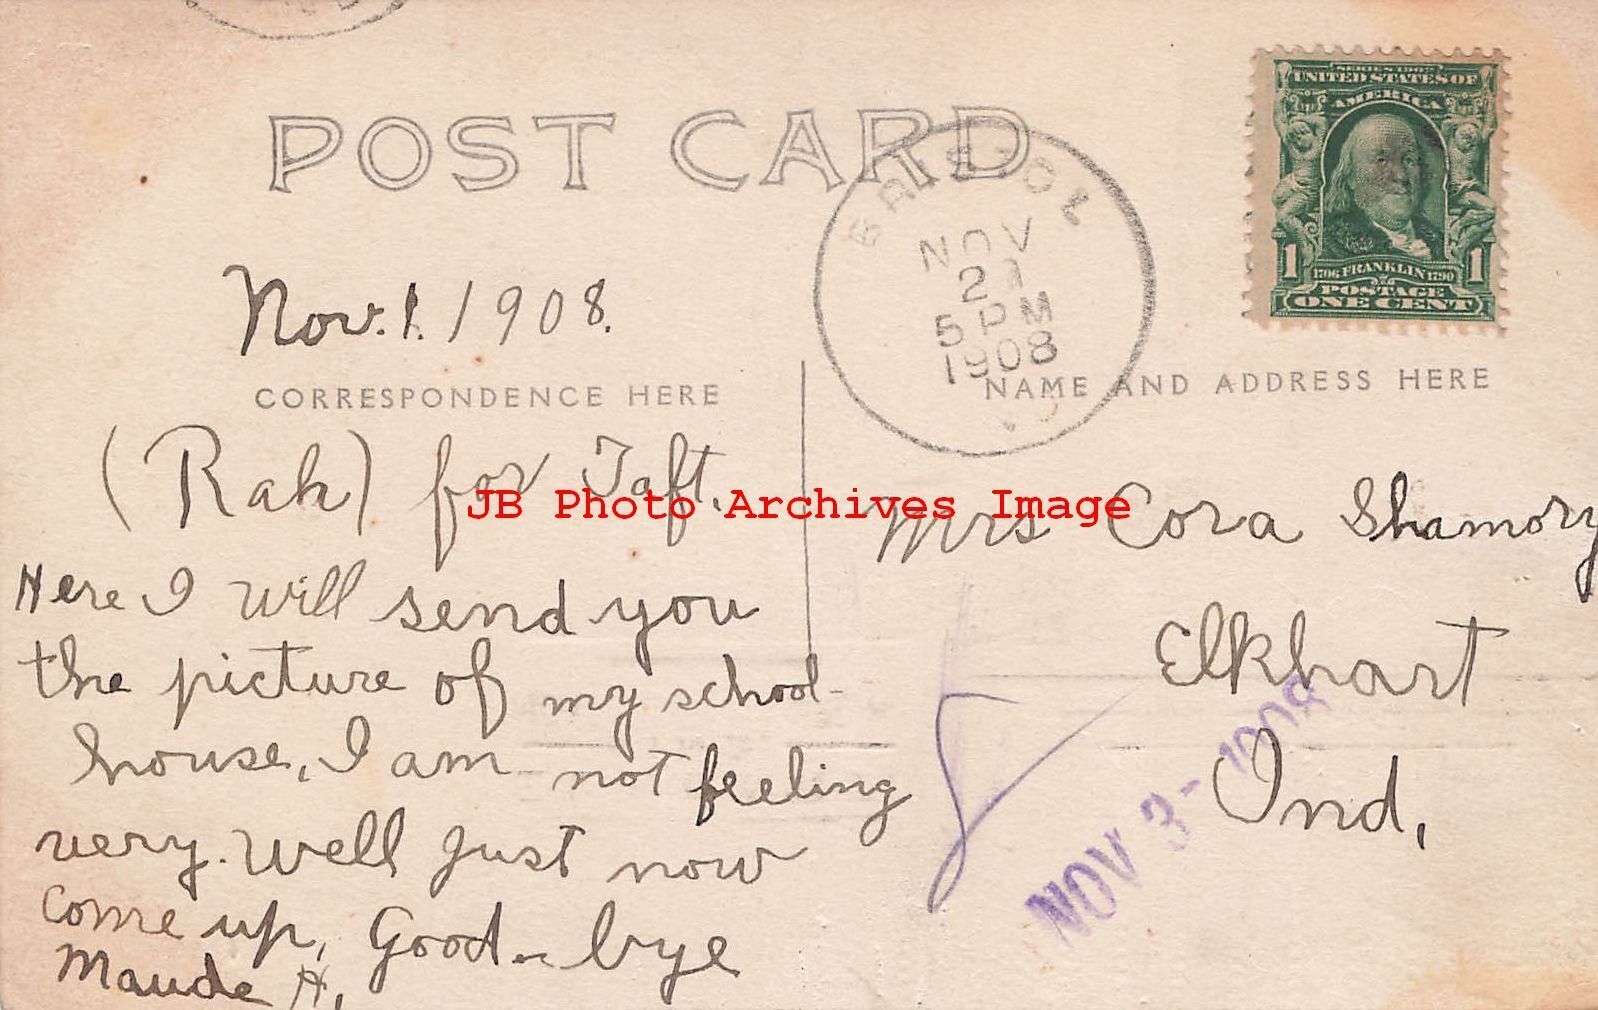 POST CARD
SERIES 1902
UNITED STATES OF
AMERICA
1 1
1706 FRANKLIN 1790
POSTAGE
ONE CENT
BRISTOL
NOV
21
5 PM
1908
Nov. 1. 1908.
CORRESPONDENCE HERE
NAME AND ADDRESS HERE
(Rah) for Taft.
Here I will send you
the picture of my school-
house, I am not feeling
very. well just now
come up, Good-bye
Maude H.
Mrs Cora Shamory
Elkhart
Ind,
NOV 3 - 1908
JB Photo Archives Image